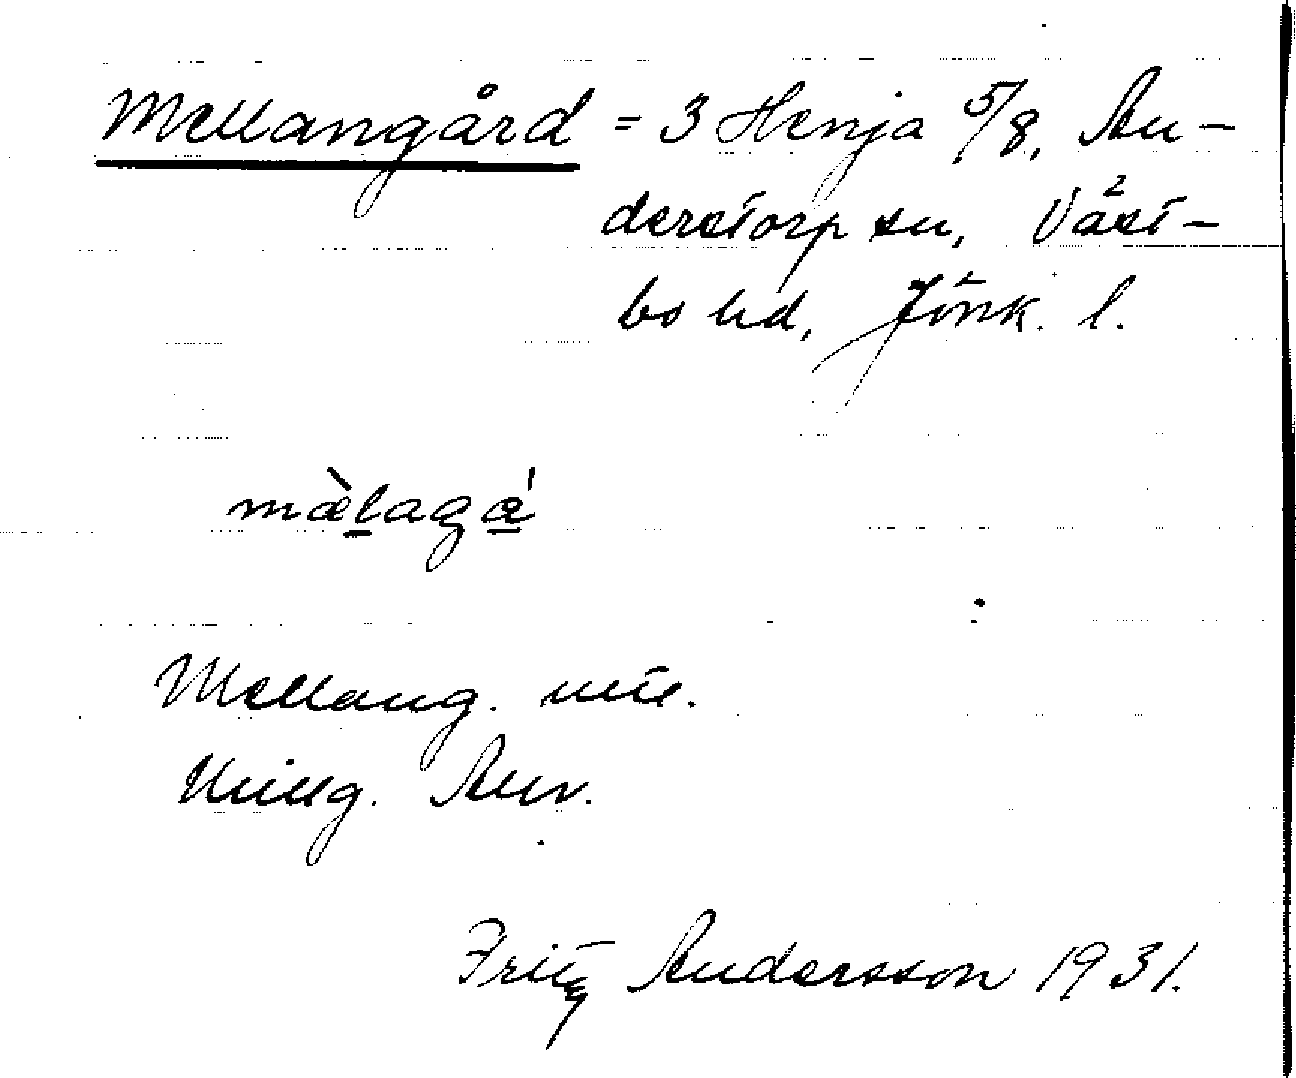 Mellangård = 3 Henja 5/8, An-
derstorp sn, Väst-
bo hd, Jönk. l.
mæ̀laga̱ˊ
Mellang. utt.
Kullg. Anv.
Fritz Andersson 1931.